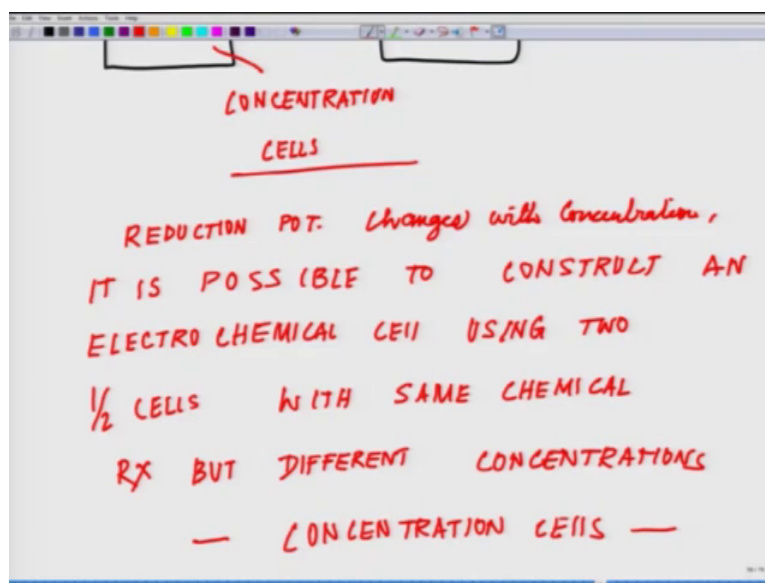 CONCENTRATION
CELLS
REDUCTION POT. Changes with Concentration,
IT IS POSSIBLE TO CONSTRUCT AN
ELECTROCHEMICAL CELL USING TWO
1/2 CELLS WITH SAME CHEMICAL
RX BUT DIFFERENT CONCENTRATIONS
— CONCENTRATION CELLS —